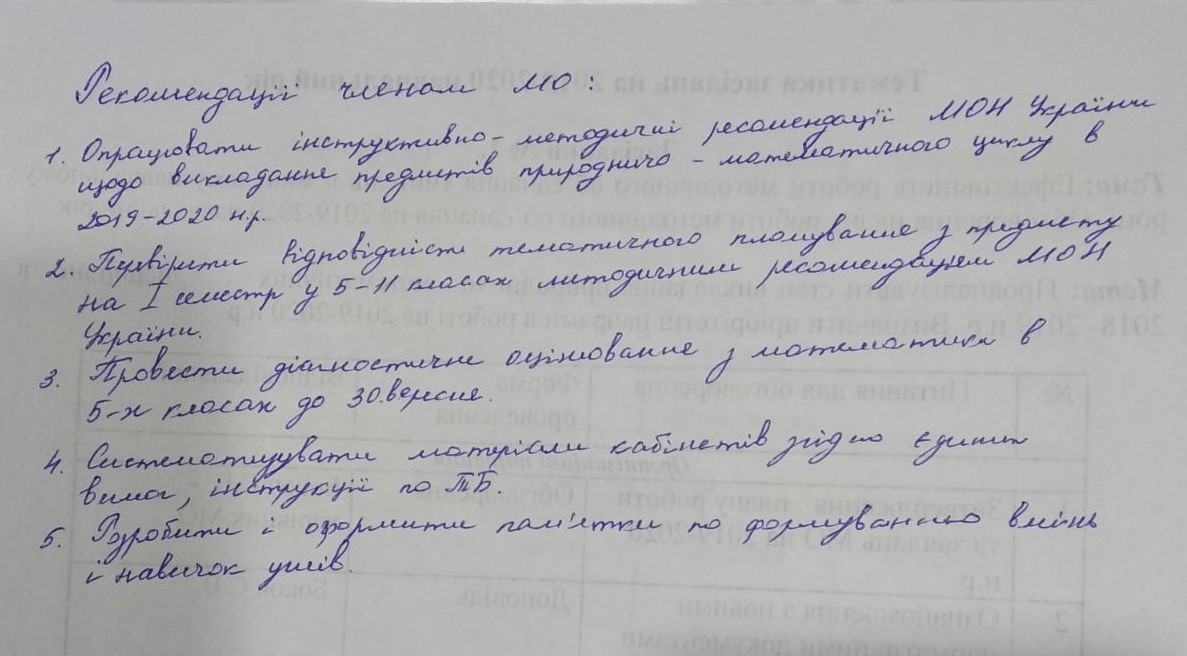 Рекомендації членам МО:
1. Опрацювати інструктивно-методичні рекомендації МОН України
щодо викладання предметів природничо-математичного циклу в
2019-2020 н.р.
2. Перевірити відповідність тематичного планування з предмету
на І семестр у 5-11 класах методичним рекомендаціям МОН
України.
3. Провести діагностичне оцінювання з математики в
5-х класах до 30 вересня.
4. Систематизувати матеріали кабінетів згідно єдиних
вимог, інструкції по ТБ.
5. Розробити і оформити пам'ятки по формуванню вмінь
і навичок учнів.